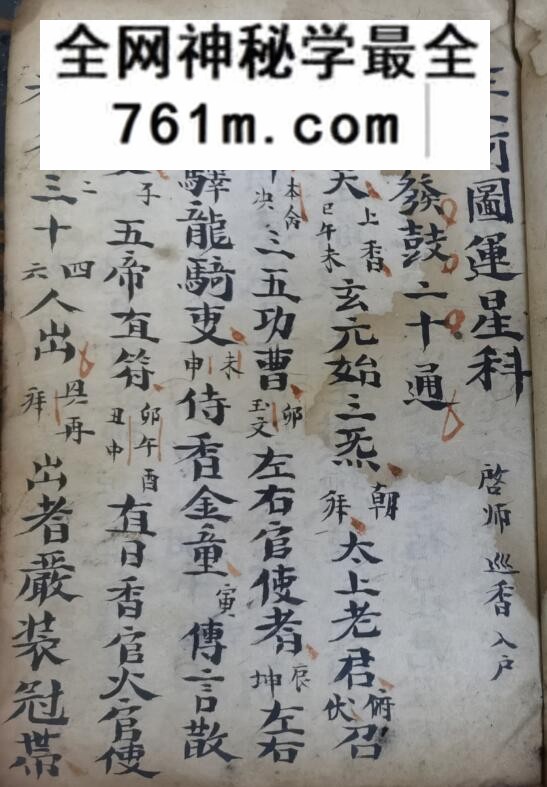 全网神秘学最全
761m.com
河圖運星科 啓师 巡香 入户
發鼓二十通
上香 巳午未 玄元始三炁 朝 拜 太上老君 俯伏 召
本命 决 三五功曹 卯 玉文 左右官使者 辰 坤 左右
驛龍騎吏 未 申 侍香金童 寅 傳言散
子 五帝直符 卯午酉 丑申 直日香官火官使
三十二 四 六 人出 再拜 出者嚴装冠带